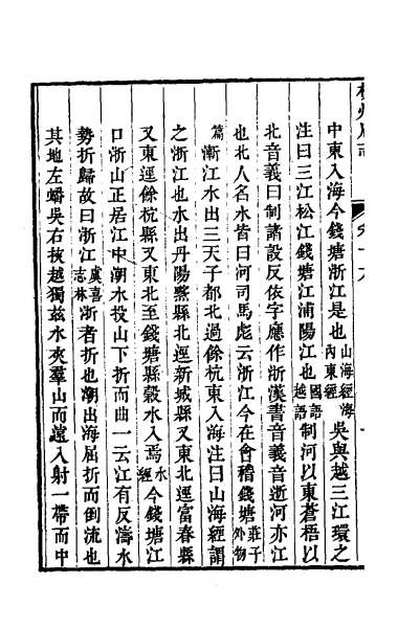 中東入海今錢塘浙江是也山海經海內東經吳與越三江環之
注曰三江松江錢塘江浦陽江也國語越語制河以東蒼梧以
北音義曰制諸設反依字應作浙漢書音義音逝河亦江
也北人名水皆曰河司馬彪云浙江今在會稽錢塘莊子外物
篇漸江水出三天子都北過餘杭東入海注曰山海經謂
之浙江也水出丹陽黟縣北逕新城縣又東北逕富春縣
又東逕餘杭縣又東北至錢塘縣穀水入焉水經今錢塘江
口浙山正居江中潮水投山下折而曲一云江有反濤水
勢折歸故曰浙江虞喜志林浙者折也潮出海屈折而倒流也
其地左蟠吳右挾越獨茲水夾羣山而遠入射一帶而中